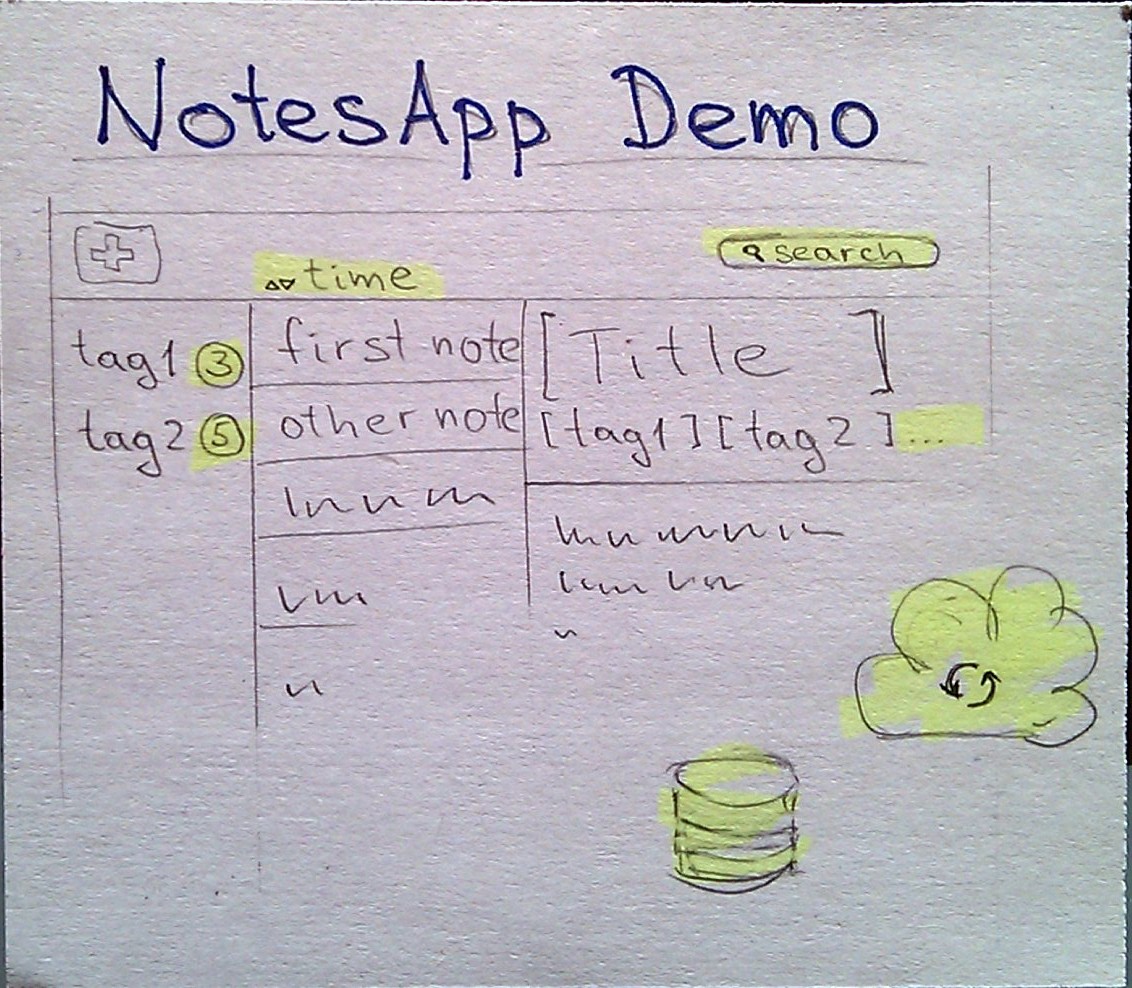 NotesApp Demo
search
time
tag1 3
tag2 5
first note
other note
[Title]
[tag1][tag2]...